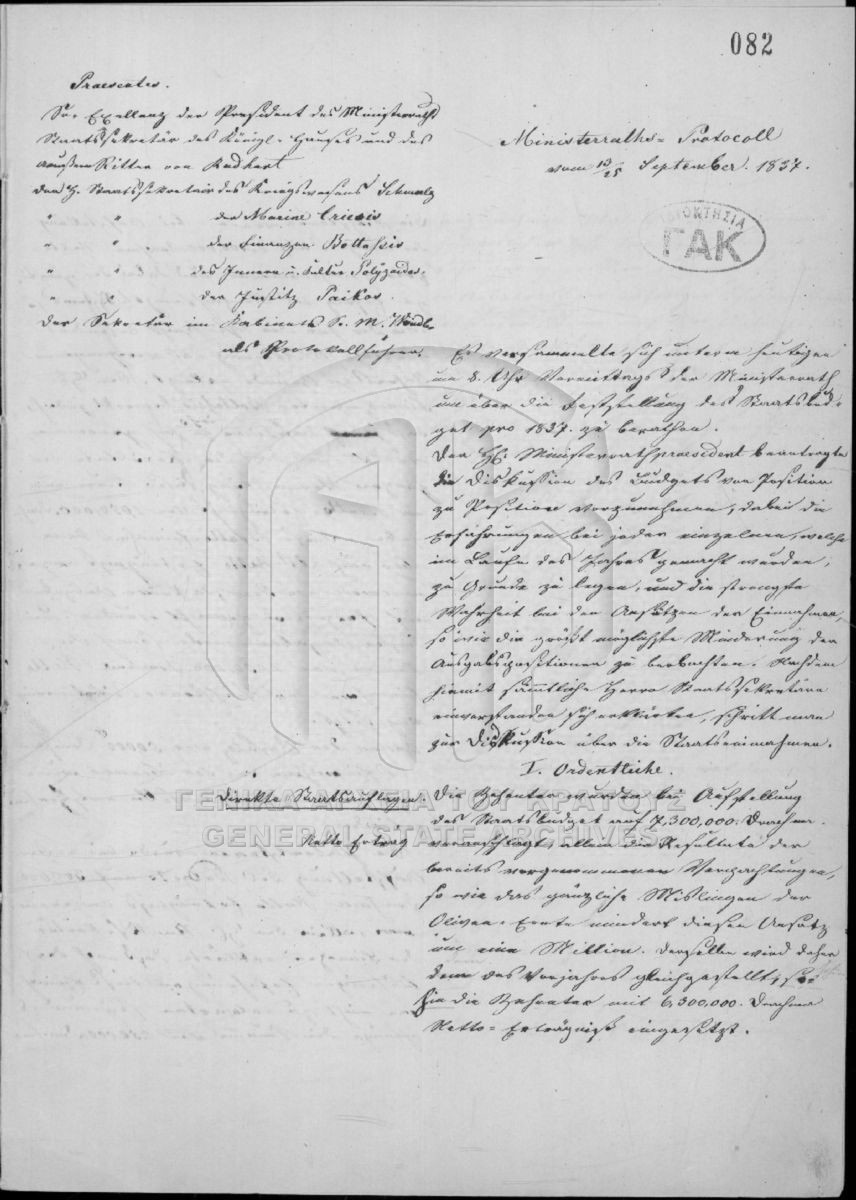 082
Praesentes.
Se. Exellenz der Präsident des Ministerraths
Staatssekretär des Königl. Hauses und des
Äußern Ritter von Rudhart
Der H. Staatssekretair des Kriegswesens Schmalz
" " der Marine Criesis
" " der Finanzen Botassis
" " des Innern u. Cultus Polyzoides.
" " der Justitz Paikos.
Der Sekretär im Kabinete Sr. M.
als Protokollführer.
Ministerraths-Protocoll
vom 13/25 September. 1837.
ΙΔΙΟΚΤΗΣΙΑ
ΓΑΚ
Es versammelte sich unterm heutigen
um 8. Uhr Vormittags der Ministerrath
um über die Feststellung des Staatsbud-
get pro 1837. zu berathen.
Der H. Ministerrathpraesident beantragte
die Diskussion des Budgets von Position
zu Position vorzunehmen, dabei die
Erfahrungen bei jeder einzelnen, welche
im Laufe des Jahres gemacht wurden,
zu Grunde zu legen, und die strengste
Wahrheit bei den Ansätzen der Einnahmen,
so wie die größt möglichste Minderung der
Ausgabspositionen zu beobachten. Nachdem
hiemit sämmtliche Herrn Staatssekretäre
einverstanden sich erklärten, schritt man
zur Diskussion über die Staatseinnahmen.
I. Ordentliche.
Direkte Staatsauflagen.
Netto Ertrag
Die Zehenten wurden bei Aufstellung
des Staatsbudget auf 7,300,000. Drachmen
veranschlagt, allein die Resultate der
bereits vorgenommenen Verpachtungen,
so wie das gänzliche Mislingen der
Oliven-Ernte mindert diesen Ansatz
um eine Million. Derselbe wird daher
dem des Vorjahres gleichgestellt,
hin die Zehenten mit 6,300,000. Drachmen
Netto-Erträgniß eingesetzt.
ΓΕΝΙΚΑ ΑΡΧΕΙΑ ΤΟΥ ΚΡΑΤΟΥΣ
GENERAL STATE ARCHIVES